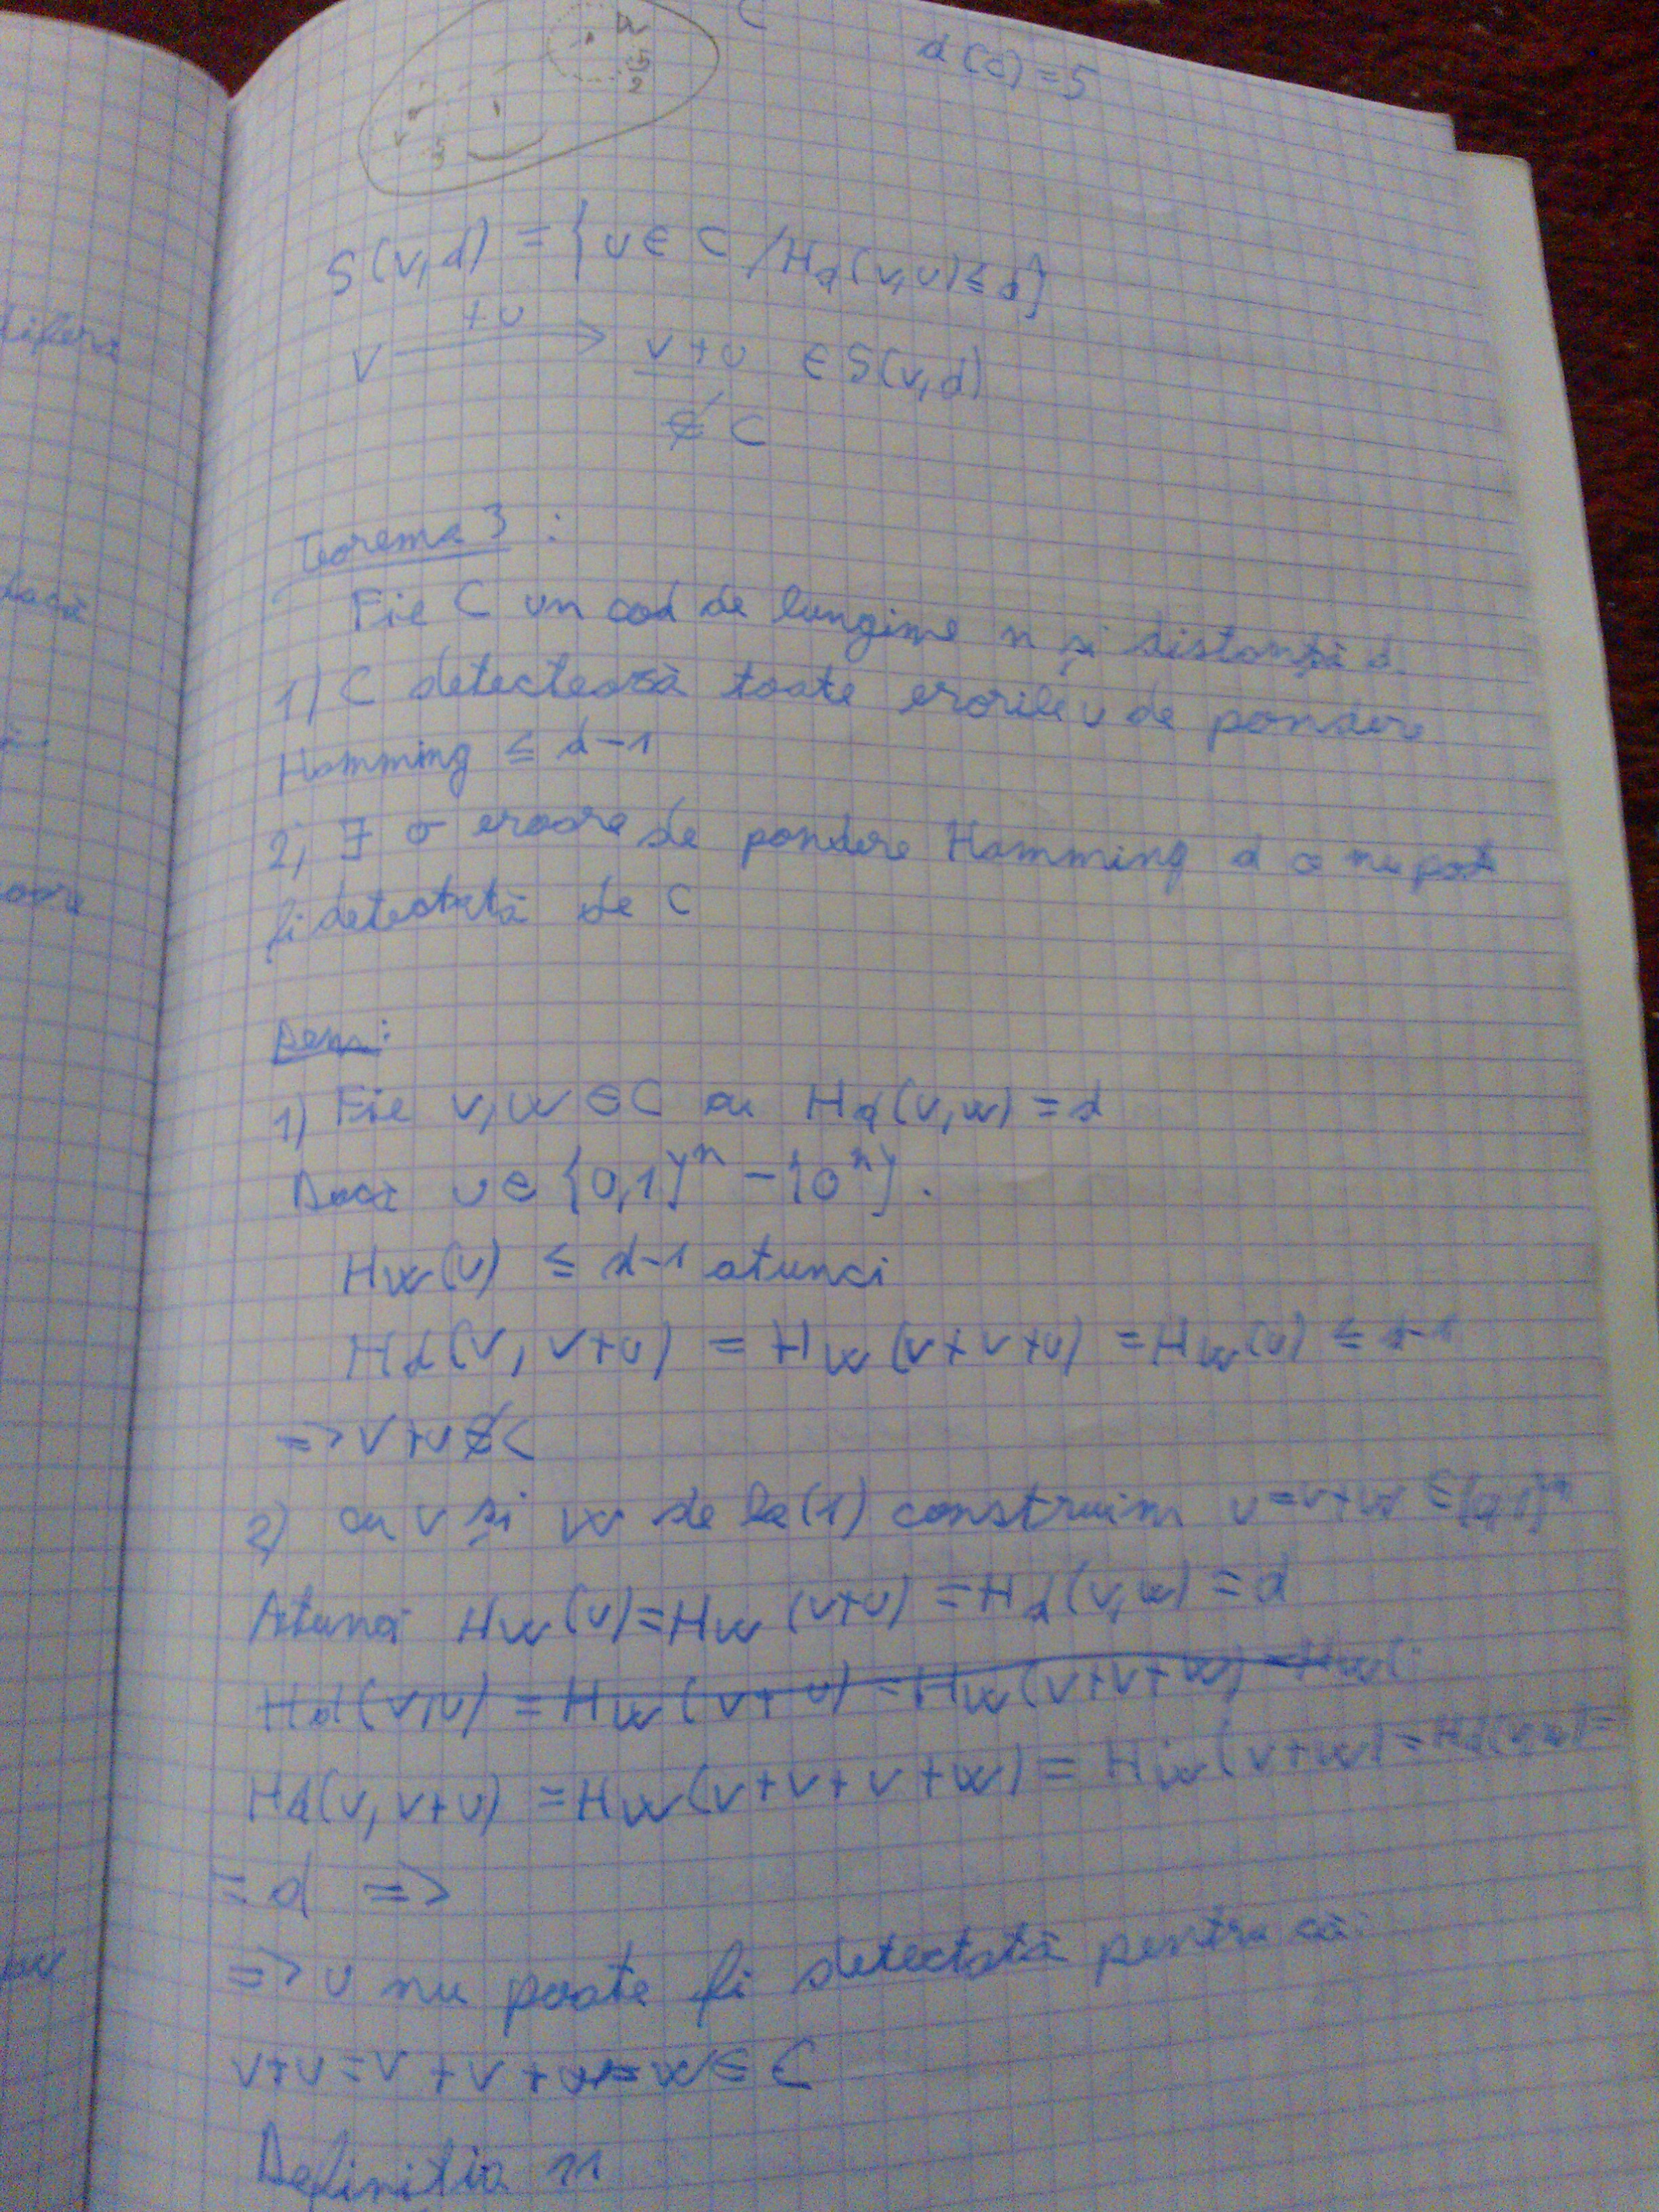 C
d(C)=5
u
5
2
v
5
S(v,d) = {u∈C / Hd(v,u)≤d}
v +u → v+u ∈ S(v,d)
∉ C
Teorema 3 :
Fie C un cod de lungime n și distanță d.
1) C detectează toate erorile u de pondere
Hamming ≤ d-1
2) ∃ o eroare de pondere Hamming d o nu pot
fi detectată de C
Dem:
1) Fie v,w ∈ C cu Hd(v,w) = d
Dacă u ∈ {0,1}ⁿ - {0ⁿ}.
Hw(u) ≤ d-1 atunci
Hd(v, v+u) = Hw(v+v+u) = Hw(u) ≤ d-1
=> v+u ∉ C
2) cu v și w de la (1) construim u=v+w ∈ {0,1}ⁿ
Atunci Hw(u)=Hw(v+u) =Hd(v,w) = d
Hd(v,u) = Hw(v+u) = Hw(v+v+w) = Hw(
Hd(v, v+u) = Hw(v+v+v+w) = Hw(v+w) = Hd(v,w) =
= d =>
=> u nu poate fi detectată pentru că:
v+u=v+v+w=w∈C
Definitia 11
difera
dacă